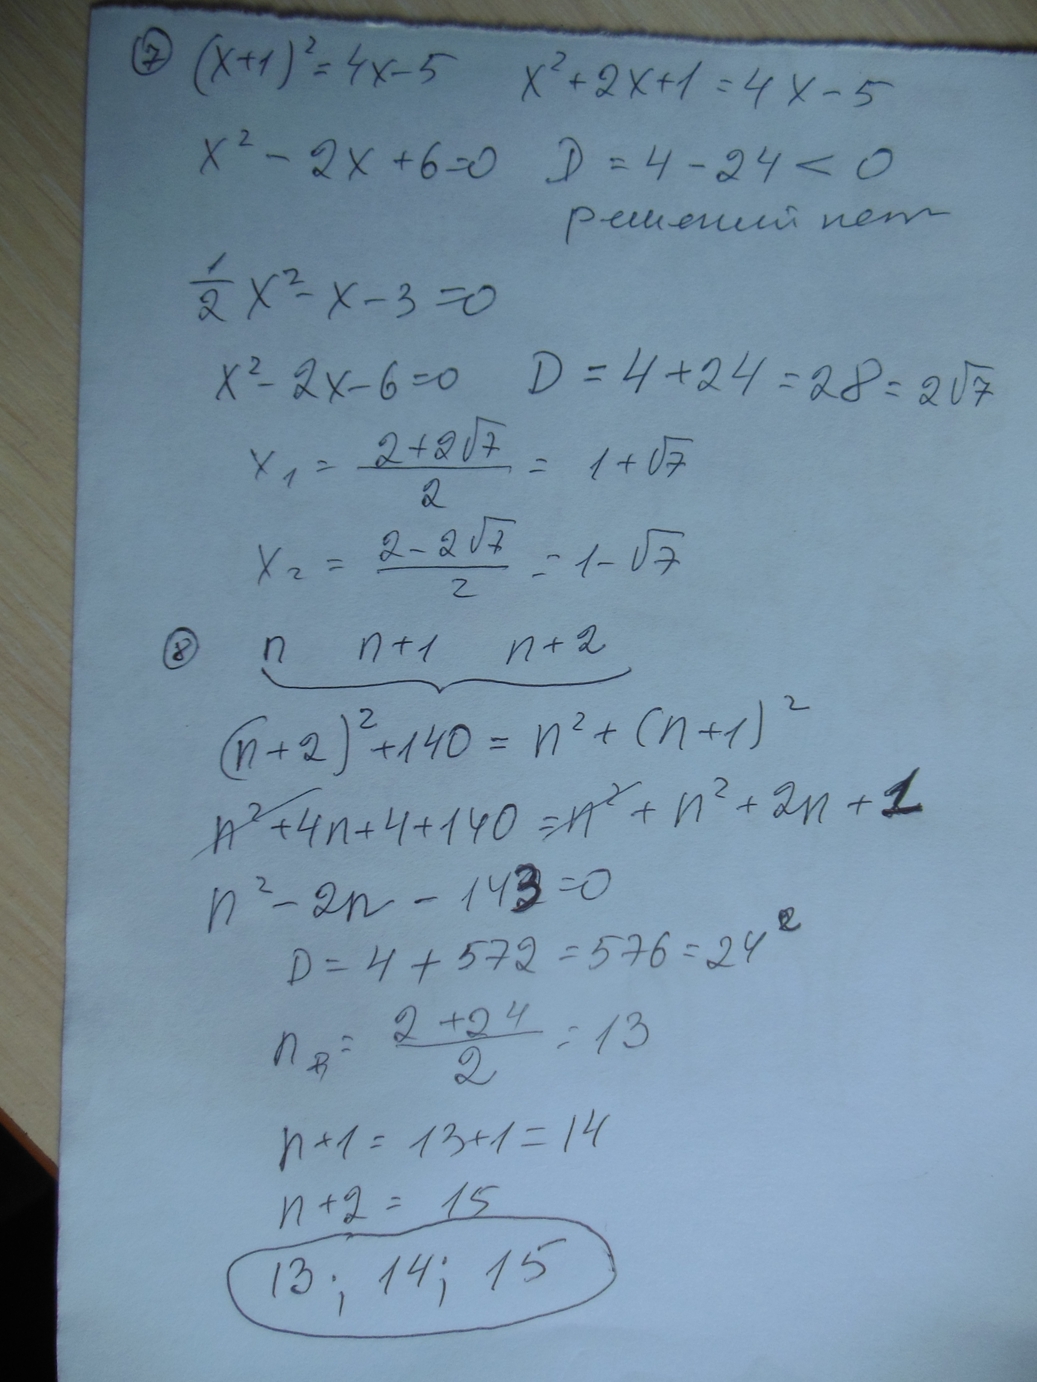 7 (x+1)² = 4x-5 x² + 2x+1 = 4x-5
x² - 2x + 6=0 D = 4 - 24 < 0
решений нет
1/2 x² - x - 3 = 0
x² - 2x - 6 = 0 D = 4 + 24 = 28 = 2√7
x₁ = (2+2√7)/2 = 1+√7
x₂ = (2-2√7)/2 = 1-√7
8 n n+1 n+2
(n+2)² + 140 = n² + (n+1)²
n² + 4n + 4 + 140 = n² + n² + 2n + 1
n² - 2n - 143 = 0
D = 4 + 572 = 576 = 24²
n = (2+24)/2 = 13
n+1 = 13+1 = 14
n+2 = 15
13; 14; 15